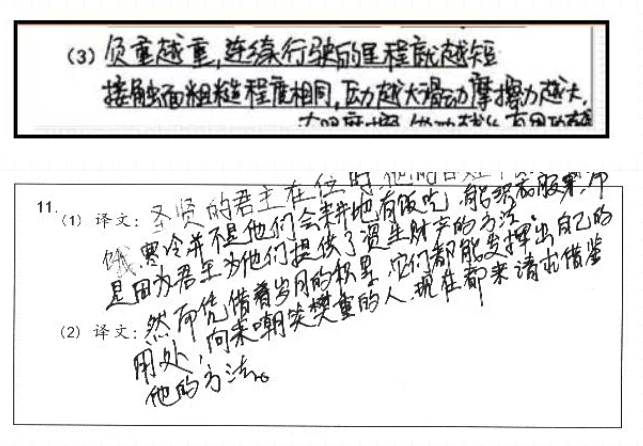 (3) 负重越重,连续行驶的里程就越短
接触面粗糙程度相同,压力越大滑动摩擦力越大,
11.
(1) 译文: 圣贤的君主在位时
饿、寒冷并不是他们会耕地有饭吃,能织布服穿,
是因为君王为他们提供了资生财产的方法。
(2) 译文: 然而凭借着岁月的积累,它们都能发挥出自己的
用处,向来嘲笑樊重的人,现在都来请求借鉴
他的方法。